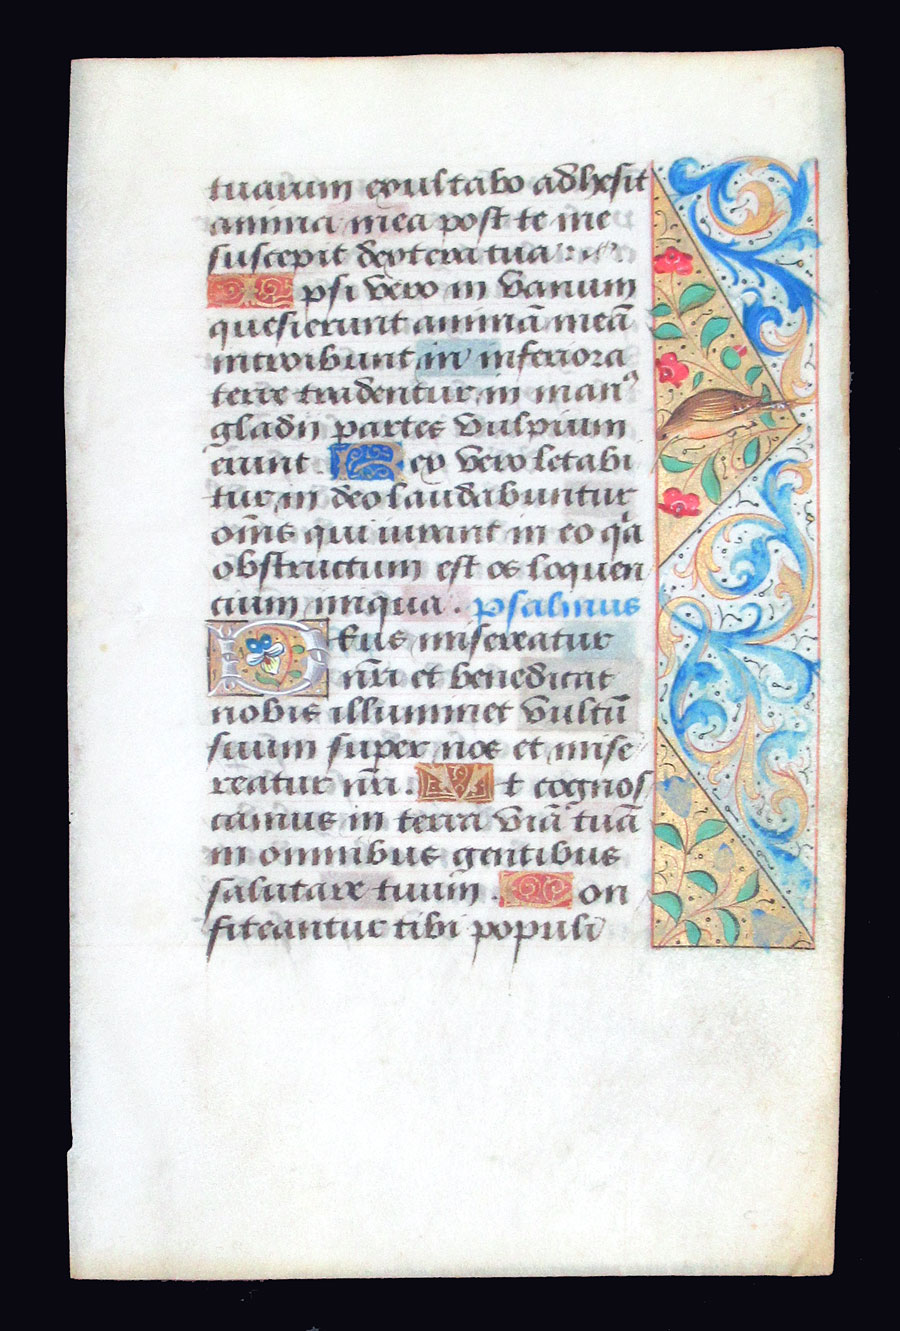 tuarum exultabo adhesit
anima mea post te me
suscepit dextera tua :
Ipsi vero in vanum
quesierunt animā meā
introibunt in inferiora
terre tradentur in manꝰ
gladii partes vulpium
erunt Rex vero letabi
tur in deo laudabuntur
om̄s qui iurant in eo qͣa
obstructum est os loquen
cium iniqua . psalmus
DEus misereatur
nr̄i et benedicat
nobis illuminet vultū
suum super nos et mise
reatur nr̄i . Ut cognos
camus in terra viā tuā
in omnibus gentibus
salutare tuum . Con
fiteantur tibi populi